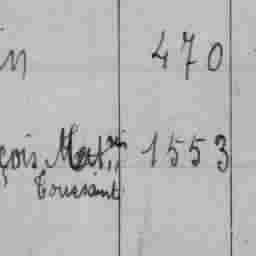 in 470
çois Mat, 1553
Toussaint